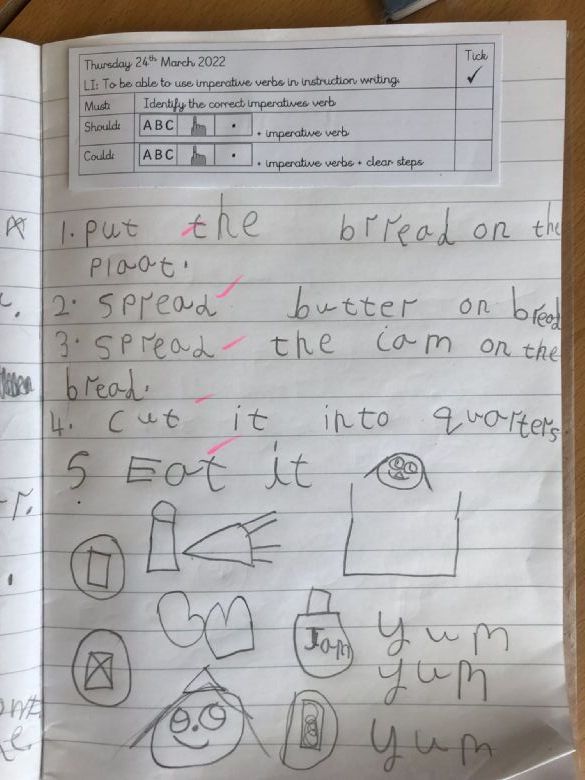 Thursday 24th March 2022
Tick
LI: To be able to use imperative verbs in instruction writing.
✓
Must: Identify the correct imperatives verb
Should: ABC . + imperative verb
Could: ABC . + imperative verbs + clear steps
1. put the brread on the
plaat.
2. spread butter on bread
3. spread the iam on the
bread.
4. cut it into quarters.
5 Eat it
Jam
yum
yum
yum